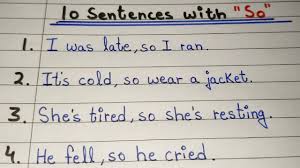 10 Sentences with "So"
1. I was late, so I ran.
2. It's cold, so wear a jacket.
3. She's tired, so she's resting.
4. He fell, so he cried.